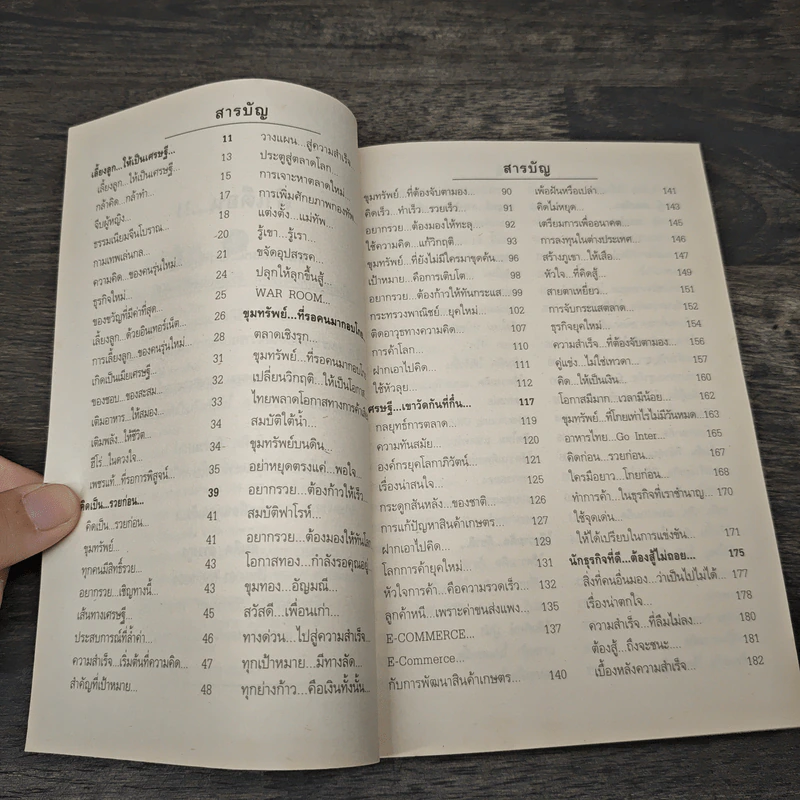 สารบัญ
เลี้ยงลูก...ให้เป็นเศรษฐี... 11
เลี้ยงลูก...ให้เป็นเศรษฐี... 13
กล้าคิด...กล้าทำ... 15
จีบผู้หญิง... 17
ธรรมเนียมจีนโบราณ... 18
กามเทพเล่นกล... 20
ความคิด...ของคนรุ่นใหม่... 21
ธุรกิจใหม่... 24
ของขวัญที่มีค่าที่สุด... 25
เลี้ยงลูก...ด้วยอินเทอร์เน็ต... 26
การเลี้ยงลูก...ของคนรุ่นใหม่... 28
เกิดเป็นเมียเศรษฐี... 31
ของชอบ...ของสะสม... 32
เติมอาหาร...ให้สมอง... 33
เติมพลัง...ให้ชีวิต... 34
ฮีโร่...ในดวงใจ... 34
เพชรแท้...ที่รอการพิสูจน์... 35
คิดเป็น...รวยก่อน... 39
คิดเป็น...รวยก่อน... 41
ขุมทรัพย์... 41
ทุกคนมีสิทธิ์รวย... 43
อยากรวย...เชิญทางนี้... 43
เส้นทางเศรษฐี... 45
ประสบการณ์ที่ล้ำค่า... 46
ความสำเร็จ...เริ่มต้นที่ความคิด... 47
สำคัญที่เป้าหมาย... 48
วางแผน...สู่ความสำเร็จ
ประตูสู่ตลาดโลก...
การเจาะหาตลาดใหม่
การเพิ่มศักยภาพกองทัพ
แต่งตั้ง...แม่ทัพ...
รู้เขา...รู้เรา...
ขจัดอุปสรรค...
ปลุกให้ลุกขึ้นสู้...
WAR ROOM...
ขุมทรัพย์...ที่รอคนมากอบโกย
ตลาดเชิงรุก...
ขุมทรัพย์...ที่รอคนมากอบโกย
เปลี่ยนวิกฤติ...ให้เป็นโอกาส
ไทยพลาดโอกาสทางการค้า
สมบัติใต้น้ำ...
ขุมทรัพย์บนดิน...
อย่าหยุดตรงแค่...พอใจ...
อยากรวย...ต้องก้าวให้เร็ว...
สมบัติฟาโรห์...
อยากรวย...ต้องมองให้ทันโลก
โอกาสทอง...กำลังรอคุณอยู่...
ขุมทอง...อัญมณี...
สวัสดี...เพื่อนเก่า...
ทางด่วน...ไปสู่ความสำเร็จ...
ทุกเป้าหมาย...มีทางลัด...
ทุกย่างก้าว...คือเงินทั้งนั้น...
สารบัญ
ขุมทรัพย์...ที่ต้องจับตามอง... 90
คิดเร็ว...ทำเร็ว...รวยเร็ว... 91
อยากรวย...ต้องมองให้ทะลุ... 92
ใช้ความคิด...แก้วิกฤติ... 93
ขุมทรัพย์...ที่ยังไม่มีใครมาขุดค้น... 96
เป้าหมาย...คือการเติบโต... 98
อยากรวย...ต้องก้าวให้ทันกระแส... 99
กระทรวงพาณิชย์...ยุคใหม่... 102
ติดอาวุธทางความคิด... 107
การค้าโลก... 110
ฝากเอาไปคิด... 111
ใช้หัวลุย... 112
เศรษฐี...เขาวัดกันที่กึ๋น... 117
กลยุทธ์การตลาด... 119
ความทันสมัย... 120
องค์กรยุคโลกาภิวัตน์... 121
เรื่องน่าสนใจ... 125
กระดูกสันหลัง...ของชาติ... 126
การแก้ปัญหาสินค้าเกษตร... 127
ฝากเอาไปคิด... 129
โลกการค้ายุคใหม่... 131
หัวใจการค้า...คือความรวดเร็ว... 132
ลูกค้าหนี...เพราะค่าขนส่งแพง... 135
E-COMMERCE... 137
E-Commerce...
กับการพัฒนาสินค้าเกษตร... 140
เพ้อฝันหรือเปล่า... 141
คิดไม่หยุด... 143
เตรียมการเพื่ออนาคต... 145
การลงทุนในต่างประเทศ... 146
สร้างภูเขา...ให้เสือ... 147
หัวใจ...ที่คิดสู้... 149
สายตาเหยี่ยว... 151
การจับกระแสตลาด... 152
ธุรกิจยุคใหม่... 154
ความสำเร็จ...ที่ต้องจับตามอง... 156
คู่แข่ง...ไม่ใช่เทวดา... 157
คิด...ให้เป็นเงิน... 160
โอกาสมีมาก...เวลามีน้อย... 162
ขุมทรัพย์...ที่โกยเท่าไรไม่มีวันหมด... 163
อาหารไทย...Go Inter... 165
คิดก่อน...รวยก่อน... 167
ใครมือยาว...โกยก่อน... 168
ทำการค้า...ในธุรกิจที่เราชำนาญ... 170
ใช้จุดเด่น...
ให้ได้เปรียบในการแข่งขัน... 171
นักธุรกิจที่ดี...ต้องสู้ไม่ถอย... 175
สิ่งที่คนอื่นมอง...ว่าเป็นไปไม่ได้... 177
เรื่องน่าตกใจ... 178
ความสำเร็จ...ที่ลืมไม่ลง... 180
ต้องสู้...ถึงจะชนะ.... 181
เบื้องหลังความสำเร็จ... 182